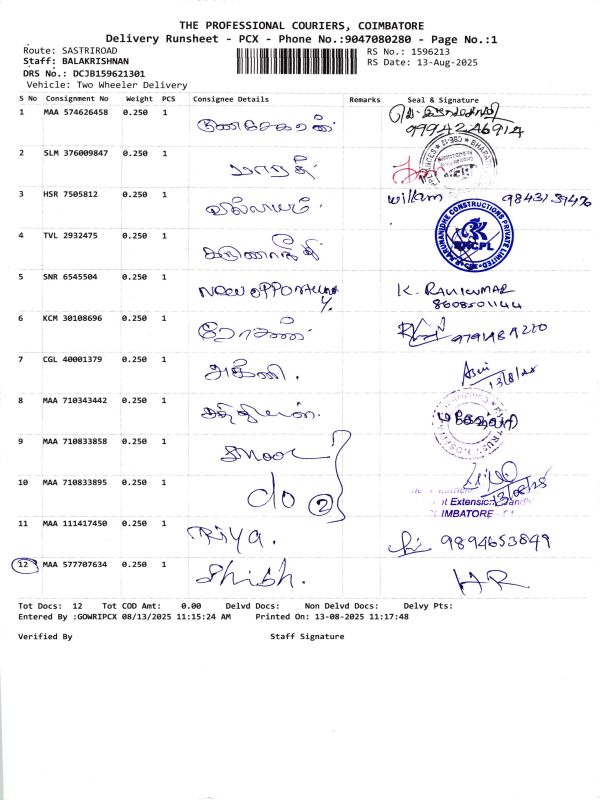 THE PROFESSIONAL COURIERS, COIMBATORE
Delivery Runsheet - PCX - Phone No.:9047080280 - Page No.:1
Route: SASTRIROAD
RS No.: 1596213
Staff: BALAKRISHNAN
RS Date: 13-Aug-2025
DRS No.: DCJB159621301
Vehicle: Two Wheeler Delivery
S No Consignment No Weight PCS Consignee Details Remarks Seal & Signature
1 MAA 574626458 0.250 1 குணசேகரன்
9994246914
2 SLM 376009847 0.250 1 பாரதி
3 HSR 7505812 0.250 1 வில்லியம் William
4 TVL 2932475 0.250 1 கருணாநிதி
CONSTRUCTIONS PRIVATE LIMITED
5 SNR 6545504 0.250 1 K. RAVIKUMAR
8608501144
6 KCM 30108696 0.250 1
7 CGL 40001379 0.250 1 அக்னி.
13/8/25
8 MAA 710343442 0.250 1
9 MAA 710833858 0.250 1
10 MAA 710833895 0.250 1 do 2
13/08/25
COIMBATORE
11 MAA 111417450 0.250 1 Riya. 9894653849
12 MAA 577707634 0.250 1 HR
Tot Docs: 12 Tot COD Amt: 0.00 Delvd Docs: Non Delvd Docs: Delvy Pts:
Entered By :GOWRIPCX 08/13/2025 11:15:24 AM Printed On: 13-08-2025 11:17:48
Verified By Staff Signature